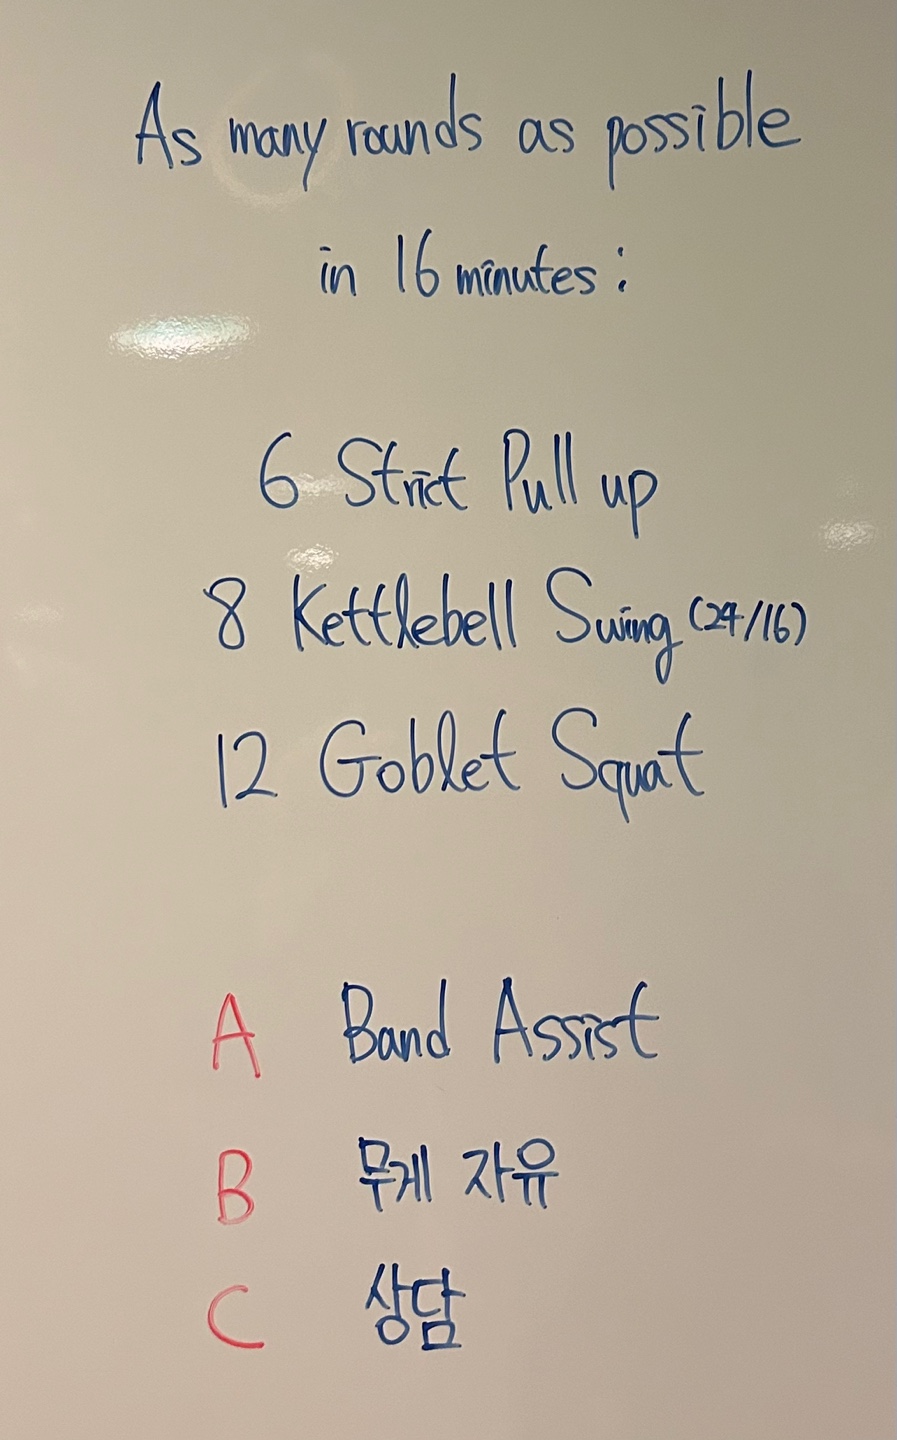 As many rounds as possible
in 16 minutes:
6 Strict Pull up
8 Kettlebell Swing (24/16)
12 Goblet Squat
A Band Assist
B 무게 자유
C 상담